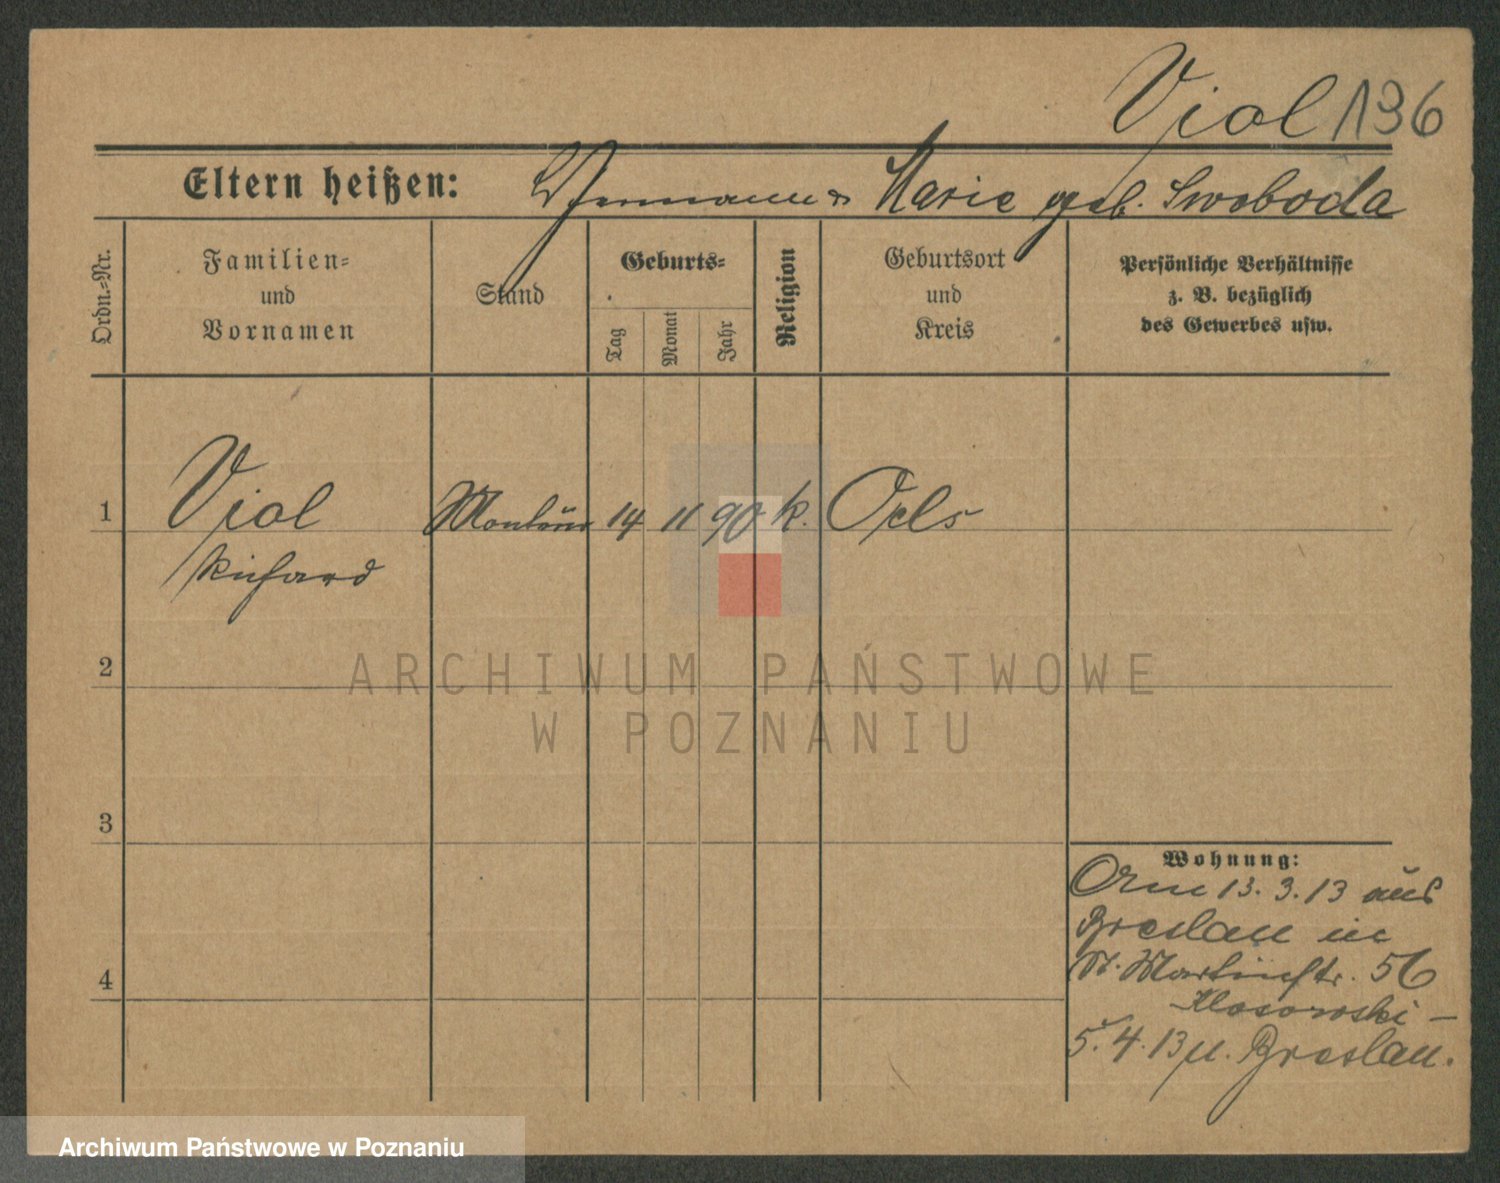 Viol 136
Eltern heißen: Hermann & Marie geb. Swoboda
Ordn.-Nr.
Familien-
und
Vornamen
Stand
Geburts-
Tag
Monat
Jahr
Religion
Geburtsort
und
Kreis
Persönliche Verhältnisse
z. B. bezüglich
des Gewerbes usw.
1 Viol Monteur 14 11 90 k. Oels
Richard
2
3
4
Wohnung:
13. 3. 13 aus
Breslau in
St. Martinstr. 56
5. 4. 13 n. Breslau.
ARCHIWUM PAŃSTWOWE
W POZNANIU
Archiwum Państwowe w Poznaniu